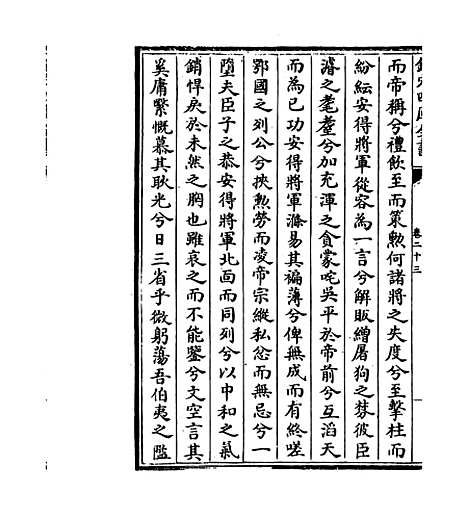 欽定四庫全書
卷二十三
而帝稱兮禮飲至而策勲何諸將之失度兮至擊柱而
紛紜安得將軍從容為一言兮解販繒屠狗之棼彼臣
濬之耄耋兮加充渾之貪蒙咤吳平於帝前兮互滔天
而為已功安得將軍滌易其褊薄兮俾無成而有終嗟
鄂國之列公兮挾勲勞而凌帝宗縱私忿而無忌兮一
墮夫臣子之恭安得將軍北面而同列兮以中和之氣
銷悍戾於未然之胸也雖哀之而不能鑒兮文空言其
奚庸緊慨慕其耿光兮日三省乎微躬蕩吾伯夷之隘